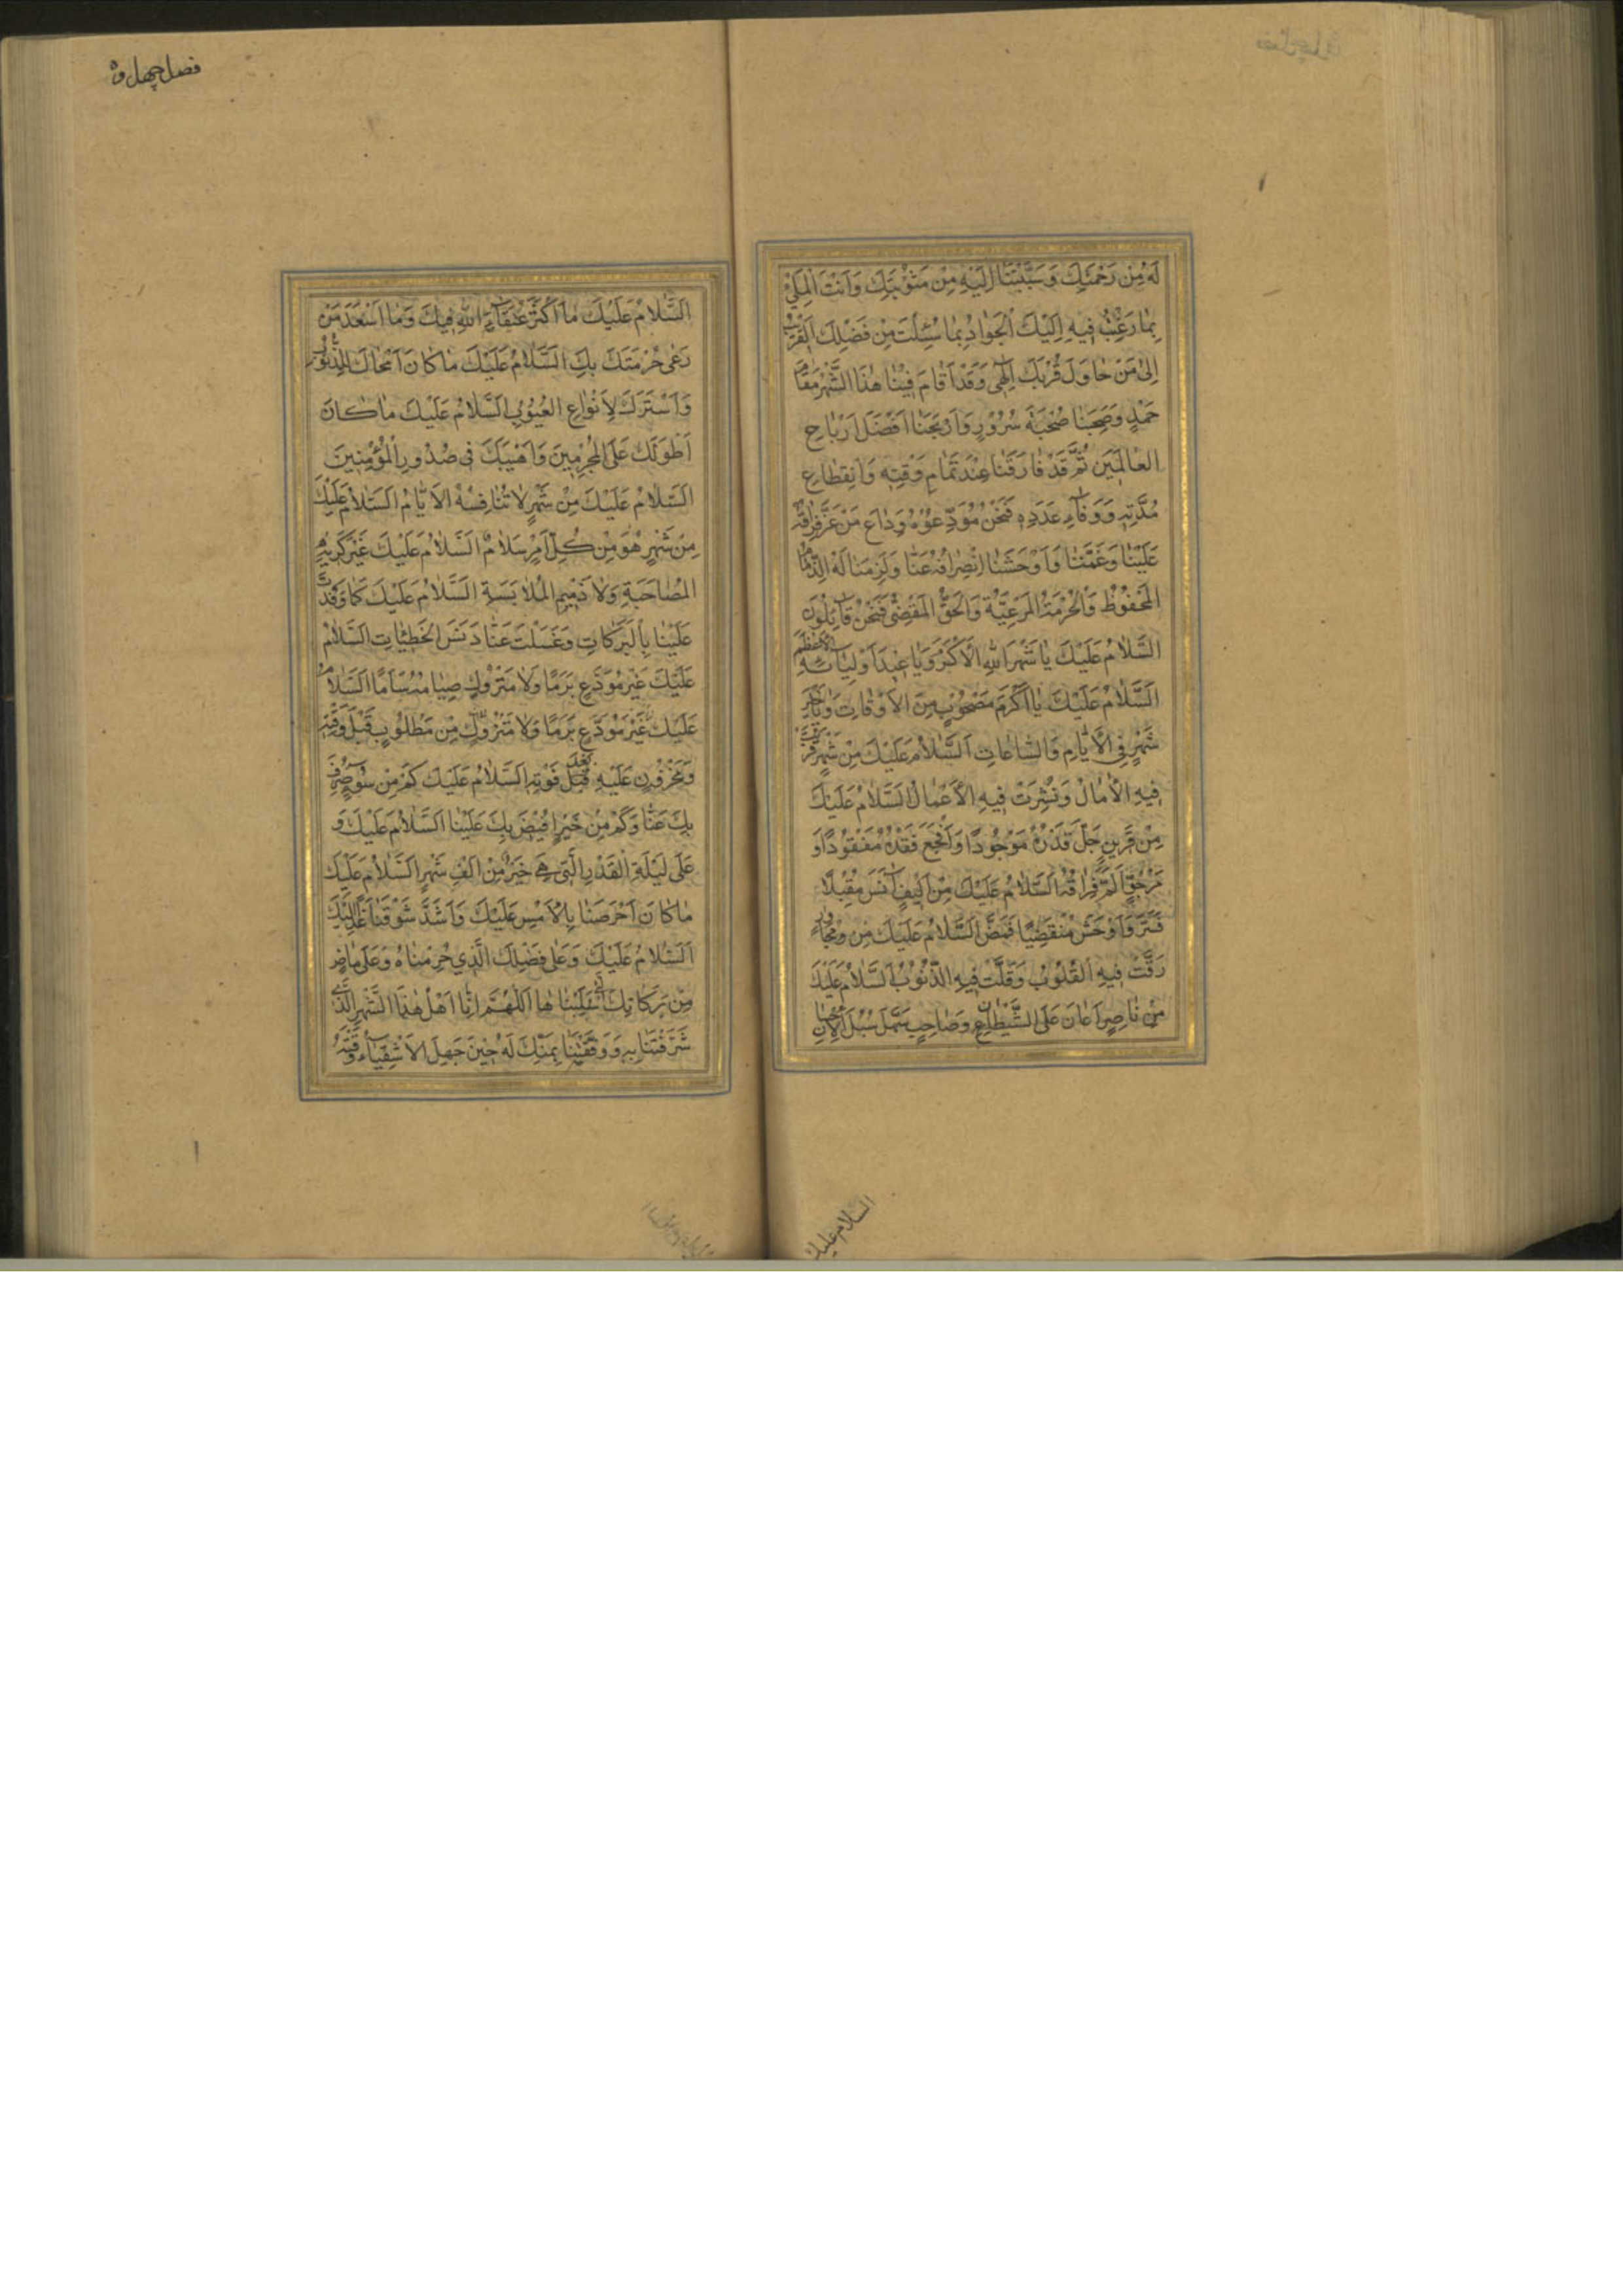 لَهُ مِنْ رَحْمَتِكَ وَسَبَّبْتَنَا اِلَيْهِ مِنْ مَثُوْبَتِكَ وَاَنْتَ الْمَلِيُّ
بِمَا رَغِبَ فِيهِ اِلَيْكَ الْجَوَادُ بِمَا سُئِلْتَ مِنْ فَضْلِكَ الْقَرِيْبُ
اِلىٰ مَنْ حَاوَلَ قُرْبَكَ اِلٰهِي وَقَدْ اَقَامَ فِيْنَا هٰذَا الشَّهْرُ مَقَامَ
حَمْدٍ وَصَحِبَنَا صُحْبَةَ سُرُوْرٍ وَاَرْبَحَنَا اَفْضَلَ اَرْبَاحِ
الْعَالَمِيْنَ ثُمَّ قَدْ فَارَقَنَا عِنْدَ تَمَامِ وَقْتِهِ وَانْقِطَاعِ
مُدَّتِهِ وَوَفَاءِ عَدَدِهِ فَنَحْنُ مُوَدِّعُوْهُ وِدَاعَ مَنْ عَزَّ فِرَاقُهُ
عَلَيْنَا وَغَمَّنَا وَاَوْحَشَنَا اِنْصِرَافُهُ عَنَّا وَلَزِمَنَا لَهُ الذِّمَامُ
الْمَحْفُوْظُ وَالْحُرْمَةُ الْمَرْعِيَّةُ وَالْحَقُّ الْمَقْضِيُّ فَنَحْنُ قَائِلُوْنَ
السَّلَامُ عَلَيْكَ يَا شَهْرَ اللهِ الْاَكْبَرَ وَيَا عِيْدَ اَوْلِيَائِهِ الْاَعْظَمَ
اَلسَّلَامُ عَلَيْكَ يَا اَكْرَمَ مَصْحُوْبٍ مِنَ الْاَوْقَاتِ وَيَا خَيْرَ
شَهْرٍ فِي الْاَيَّامِ وَالسَّاعَاتِ اَلسَّلَامُ عَلَيْكَ مِنْ شَهْرٍ قَرُبَتْ
فِيهِ الْاٰمَالُ وَنُشِرَتْ فِيهِ الْاَعْمَالُ اَلسَّلَامُ عَلَيْكَ
مِنْ قَرِيْنٍ جَلَّ قَدْرُهُ مَوْجُوْدًا وَاَفْجَعَ فَقْدُهُ مَفْقُوْدًا وَ
مَرْجُوٍّ اٰلَمَ فِرَاقُهُ اَلسَّلَامُ عَلَيْكَ مِنْ اَلِيْفٍ اٰنَسَ مُقْبِلًا
فَسَرَّ وَاَوْحَشَ مُنْقَضِيًا فَمَضَّ اَلسَّلَامُ عَلَيْكَ مِنْ مُجَاوِرٍ
رَقَّتْ فِيهِ الْقُلُوْبُ وَقَلَّتْ فِيهِ الذُّنُوْبُ اَلسَّلَامُ عَلَيْكَ
مِنْ نَاصِرٍ اَعَانَ عَلَى الشَّيْطَانِ وَصَاحِبٍ سَهَّلَ سُبُلَ الْاِحْسَانِ
السلام عليك
فصل چهل و
اَلسَّلَامُ عَلَيْكَ مَا اَكْثَرَ عُتَقَاءَ اللهِ فِيْكَ وَمَا اَسْعَدَ مَنْ
رَعٰى حُرْمَتَكَ بِكَ اَلسَّلَامُ عَلَيْكَ مَا كَانَ اَمْحَاكَ لِلذُّنُوْبِ
وَاَسْتَرَكَ لِاَنْوَاعِ الْعُيُوْبِ اَلسَّلَامُ عَلَيْكَ مَا كَانَ
اَطْوَلَكَ عَلَى الْمُجْرِمِيْنَ وَاَهْيَبَكَ فِي صُدُوْرِ الْمُؤْمِنِيْنَ
اَلسَّلَامُ عَلَيْكَ مِنْ شَهْرٍ لَا تُنَافِسُهُ الْاَيَّامُ اَلسَّلَامُ عَلَيْكَ
مِنْ شَهْرٍ هُوَ مِنْ كُلِّ اَمْرٍ سَلَامٌ اَلسَّلَامُ عَلَيْكَ غَيْرَ كَرِيْهِ
الْمُصَاحَبَةِ وَلَا ذَمِيْمِ الْمُلَابَسَةِ اَلسَّلَامُ عَلَيْكَ كَمَا وَفَدْتَ
عَلَيْنَا بِالْبَرَكَاتِ وَغَسَلْتَ عَنَّا دَنَسَ الْخَطِيْئَاتِ اَلسَّلَامُ
عَلَيْكَ غَيْرَ مُوَدَّعٍ بَرَمًا وَلَا مَتْرُوْكٍ صِيَامُهُ سَاَمًا اَلسَّلَامُ
عَلَيْكَ غَيْرَ مُوَدَّعٍ بَرَمًا وَلَا مَتْرُوْكٍ مِنْ مَطْلُوْبٍ قَبْلَ وَقْتِهِ
وَمَحْزُوْنٍ عَلَيْهِ قَبْلَ فَوْتِهِ اَلسَّلَامُ عَلَيْكَ كَمْ مِنْ سُوْءٍ صُرِفَ
بِكَ عَنَّا وَكَمْ مِنْ خَيْرٍ اُفِيْضَ بِكَ عَلَيْنَا اَلسَّلَامُ عَلَيْكَ وَ
عَلٰى لَيْلَةِ الْقَدْرِ الَّتِي هِيَ خَيْرٌ مِنْ اَلْفِ شَهْرٍ اَلسَّلَامُ عَلَيْكَ
مَا كَانَ اَحْرَصَنَا بِالْاَمْسِ عَلَيْكَ وَاَشَدَّ شَوْقَنَا غَدًا اِلَيْكَ
اَلسَّلَامُ عَلَيْكَ وَعَلٰى فَضْلِكَ الَّذِي حُرِمْنَاهُ وَعَلٰى مَاضٍ
مِنْ بَرَكَاتِكَ سُلِبْنَاهَا اَللّٰهُمَّ اِنَّا اَهْلُ هٰذَا الشَّهْرِ الَّذِي
شَرَّفْتَنَا بِهِ وَوَفَّقْتَنَا بِمَنِّكَ لَهُ حِيْنَ جَهِلَ الْاَشْقِيَاءُ وَقْتَهُ